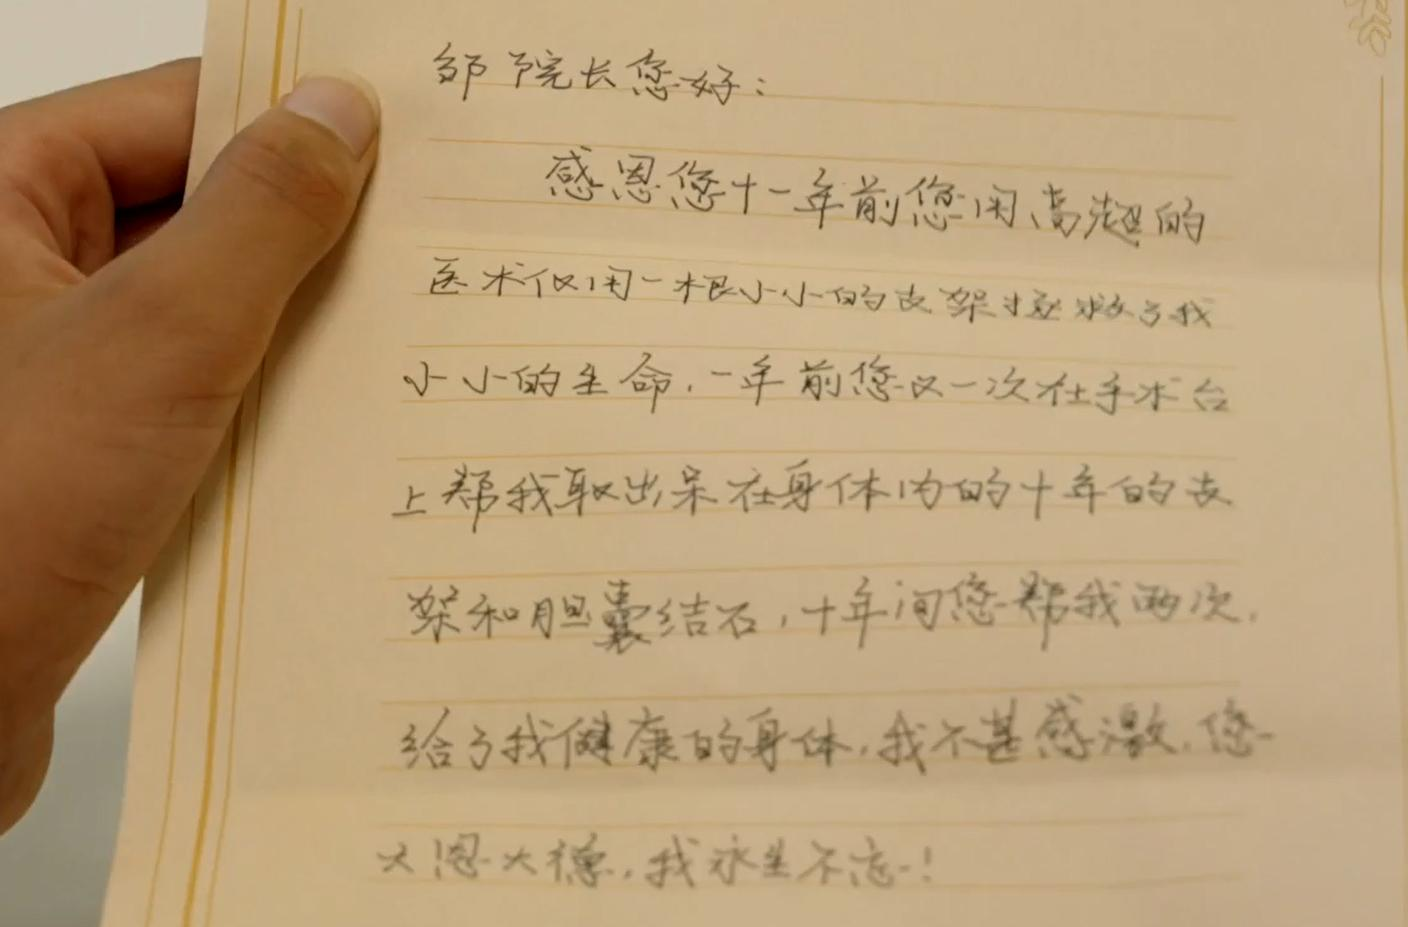 邹院长您好：
感恩您十一年前您用高超的
医术仅用一根小小的支架拯救了我
小小的生命，一年前您又一次在手术台
上帮我取出呆在身体内的十年的支
架和胆囊结石，十年间您帮我两次，
给了我健康的身体，我不甚感激，您
大恩大德，我永生不忘！